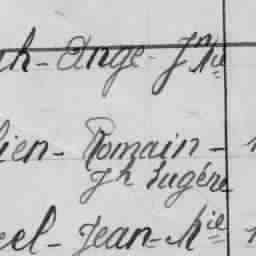 ah-Ange-J Mie
lien-Romain-
Jh Eugéne
cel-Jean-Mie